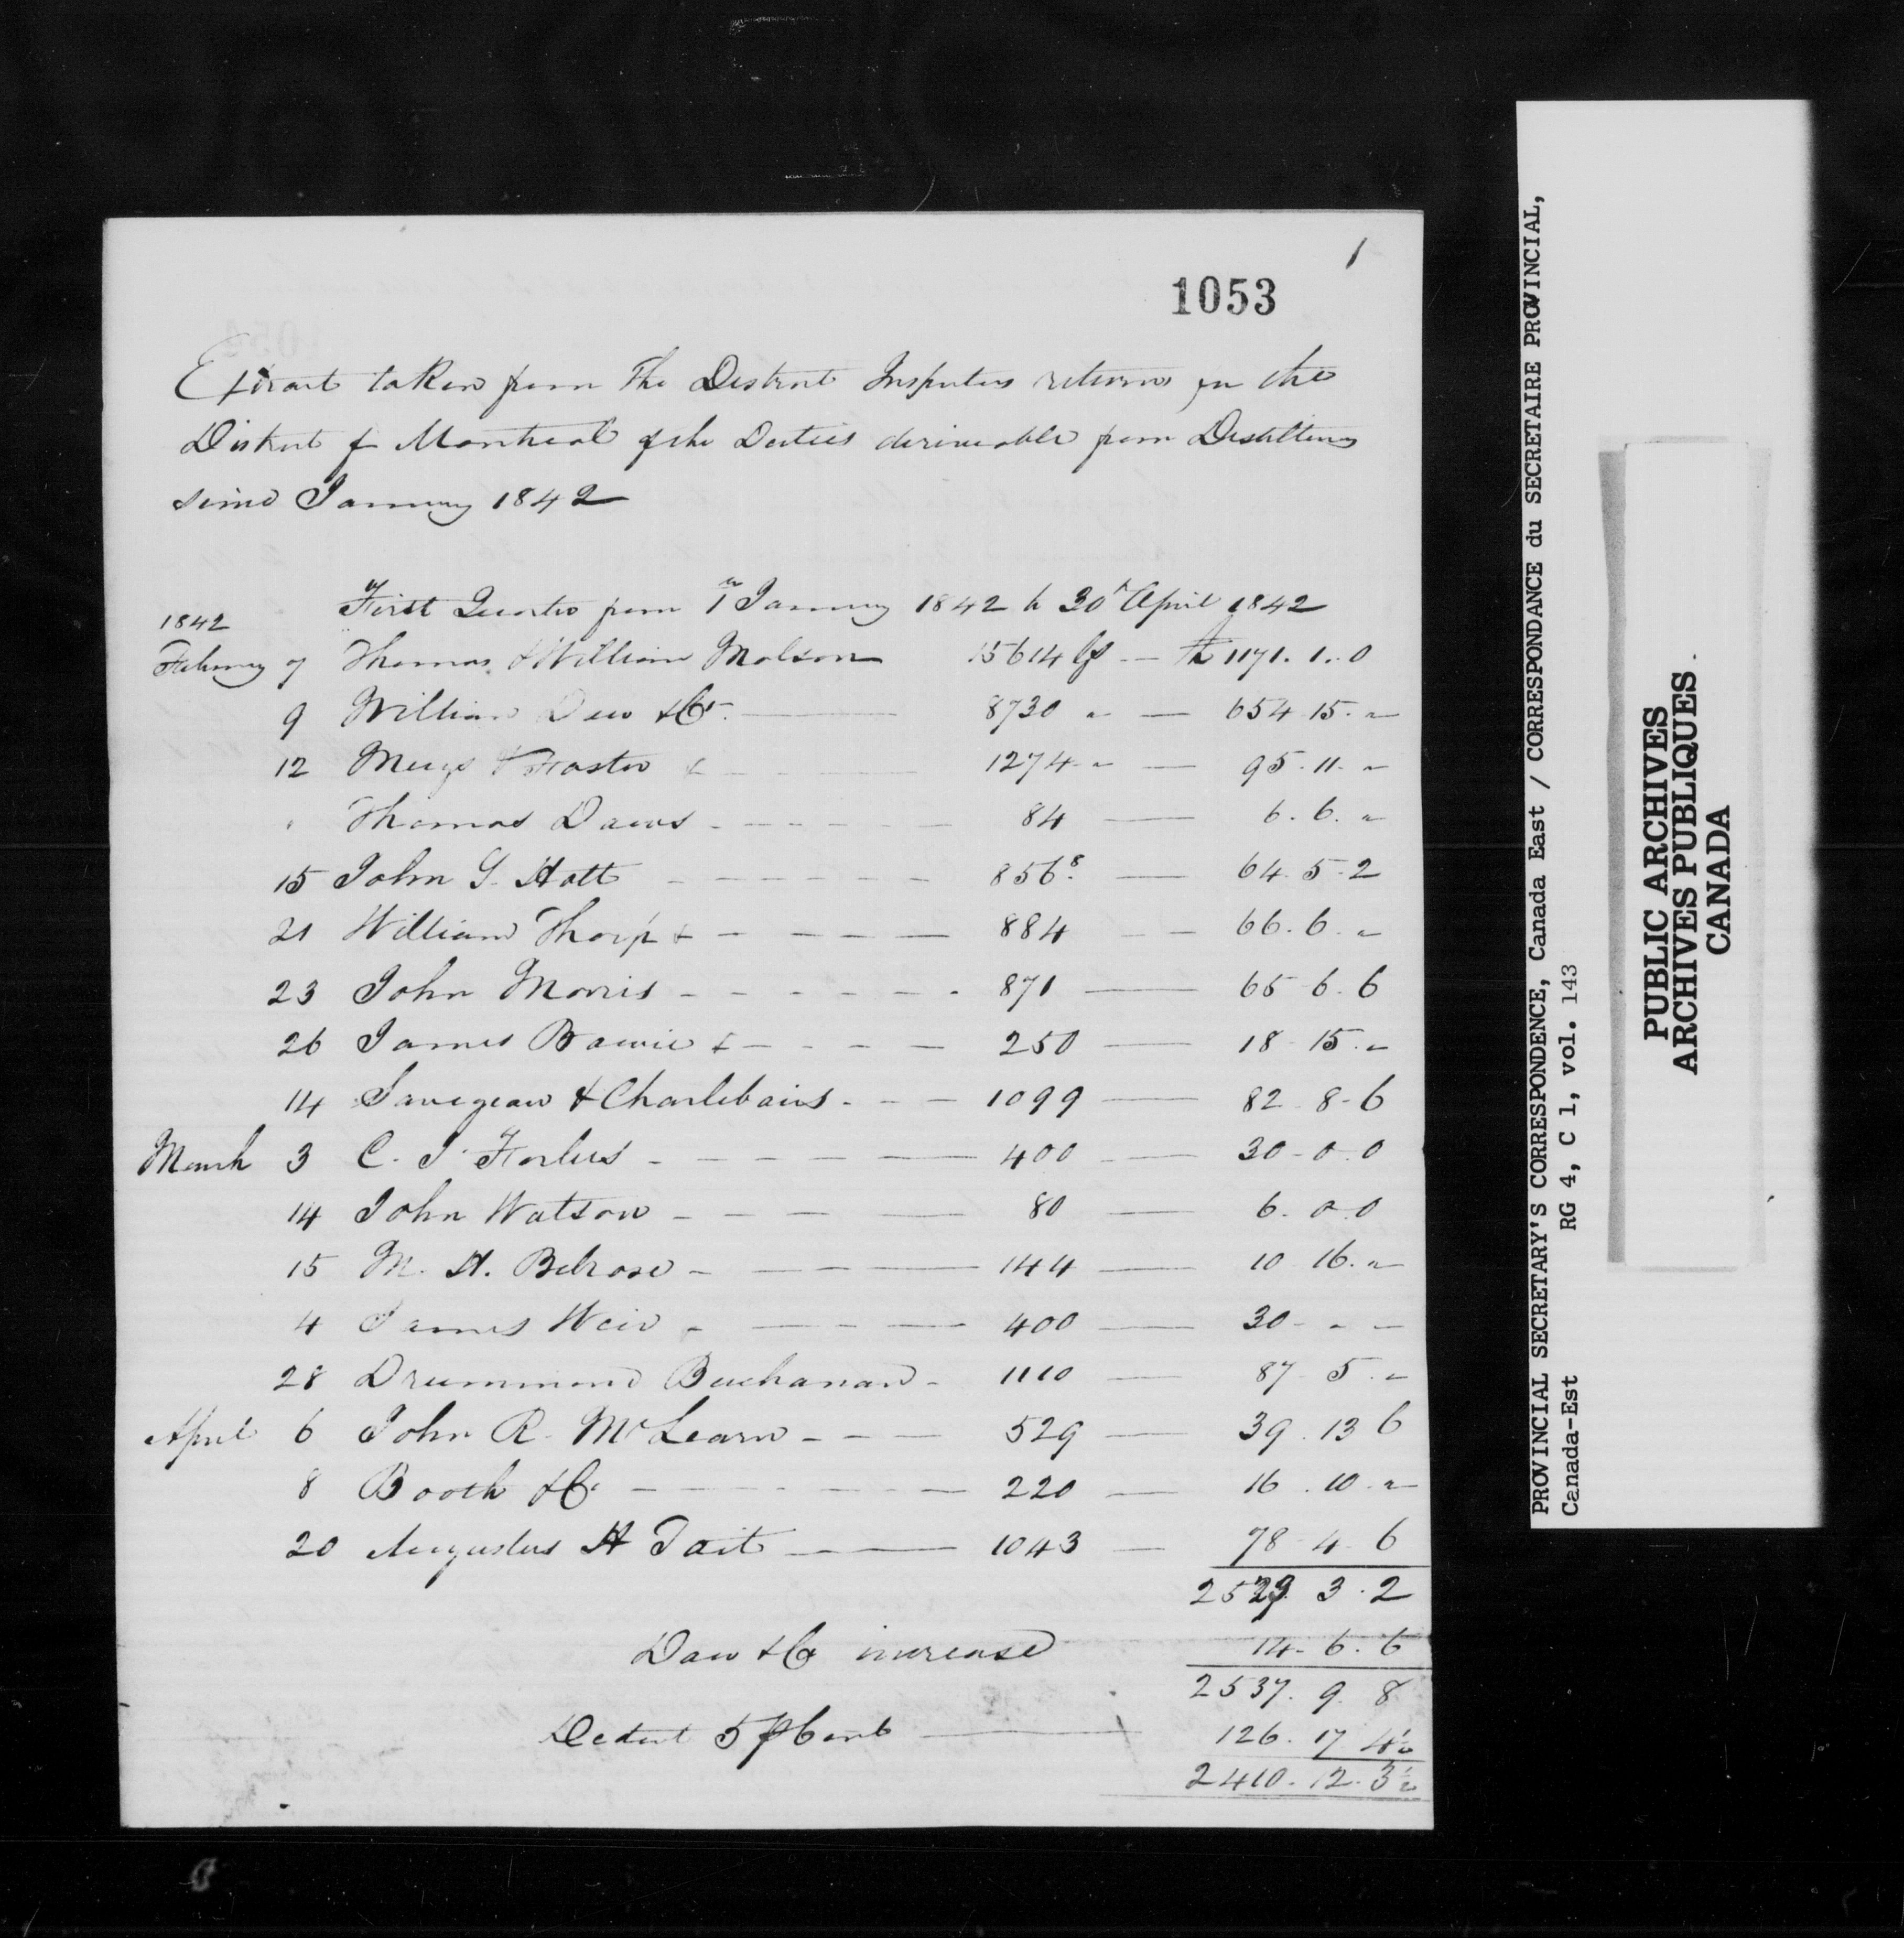 1
1053
Extract taken from the District Inspectors returns for the
District of Montreal of the Duties deriveable from Distilleries
since January 1842
First Quarter from 1st January 1842 to 30th April 1842
1842
February 7 Thomas & William Molson 15614 Gs — £ 1171. 1. 0
9 William Dow & Co. — 8730 " — 654. 15. "
12 Meigs & 1274 " — 95. 11. "
" Thomas Dawes - - - 84 — 6. 6. "
15 John G. Hatt - - - 856.8 — 64. 5. 2
21 William Thorp + - - - 884 - - 66. 6. "
23 John Morris - - - 871 — 65. 6. 6
26 James + - - - 250 — 18. 15. "
14 Sauvageau & Charlebois - - - 1099 — 82. 8. 6
March 3 C. J. Forbes - - - 400 — 30. 0. 0
14 John Watson - - - 80 — 6. 0. 0
15 M. H. Belrose - - - 144 — 10. 16. "
4 James Weir - - - 400 — 30. " "
28 Drummond Buchanan - 1110 — 87. 5. "
April 6 John R. McLearn - - - 529 — 39. 13. 6
8 Booth & Co. - - - 220 — 16. 10. "
20 Augustus H Tait — 1043 — 78. 4. 6
2523. 3. 2
Dow & Co increase 14. 6. 6
2537. 9. 8
Deduct 5 p Cent — 126. 17. 4½
2410. 12. 3½
PROVINCIAL SECRETARY'S CORRESPONDENCE, Canada East / CORRESPONDANCE du SECRETAIRE PROVINCIAL,
Canada-Est RG 4, C 1, vol. 143
PUBLIC ARCHIVES
ARCHIVES PUBLIQUES
CANADA